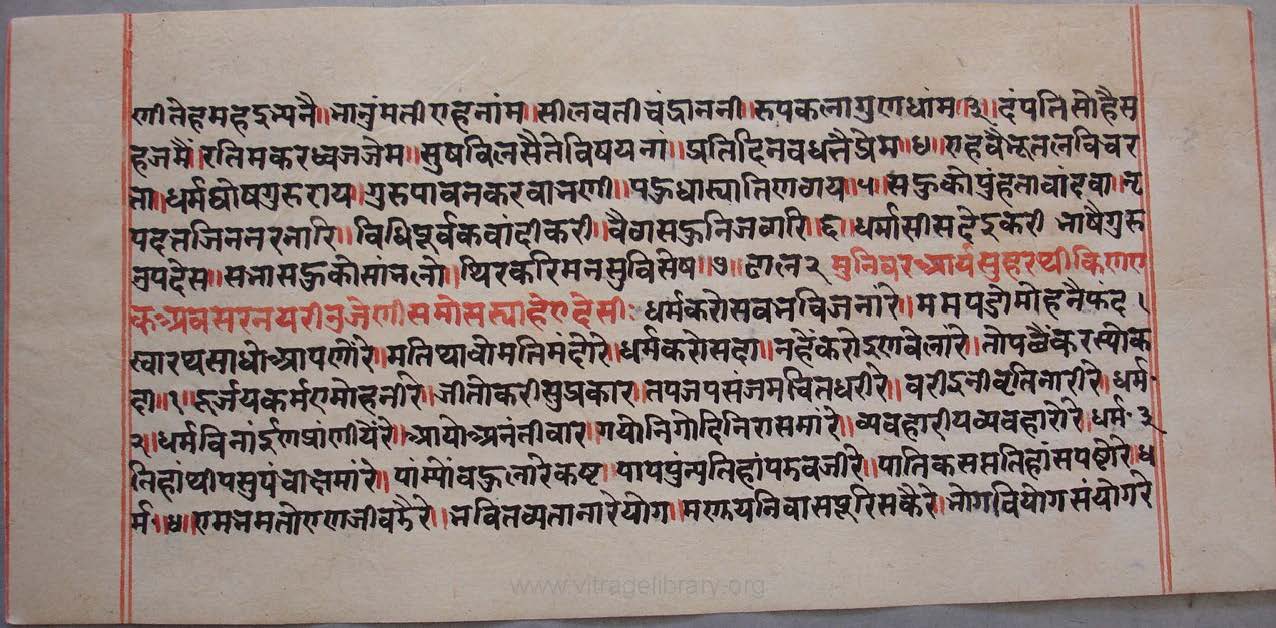 णी तेहमहइभ्यनै॥भानुंमती एहनांम॥सीलवती चंद्राननी॥रुपकलागुणधांम॥३॥दंपति सोहै सु
हजमै॥रतिमकरध्वज जेम॥सुषविलसै ते विषयनां॥प्रतिदिन वधतै प्रेम॥४॥एहवै भूतल विचर
ता॥धर्मघोषगुरुराय॥गुरु पावन करवा भणी॥पऊधास्या तिण वाय॥५॥सऊको पुंहता वांदवा॥नृ
पदत्त जिन नरनारि॥विधिपूर्वक वांदी करी॥वैवा सऊ निज वारि॥६॥धर्मासीस देई करी भाषै गुरु
उपदेस॥सभा सऊको सांभलो॥थिर करि मन सुविसेष॥७॥ढाल २ मुनिवर आर्य सुहस्थी किण ए
क अवसर नयरी उजेणी समोसस्या हे ए देसी॰ धर्म करो सवभविजनां रे॥मम पडो मोहनै फंद।
स्वारथ साधो आपणो रे॥मति थावो मतिमंदो रे॥धर्म करो सदा॥नहें करो इण वेलां रे॥तो पछै कर स्यो क
दा॥१॥दूर्जय कर्म ए मोहनी रे॥जीतो करी सुप्रकार॥तप जप संजम चित धरी रे॥वरीइ नीवृति नारी रे॥धर्म॰
२॥धर्म विनां ईण प्रांणीयें रे॥आयो अनंती वार॥गयो निगोदि निरासमां रे॥व्यवहारीय व्यवहारो रे॥धर्म॰३
तिहां थी पसु पंचाक्षमां रे॥पांम्यों बऊला रे कष्ट॥पाप पुंन्य तिहां पडवजी रे॥पातिक सप्त तिहां सपष्टो रे॥ध
र्म॰॥४॥एम भमतो ए ण जीवडै रे॥भवितव्यता ना रे योग॥मणूयनिवास पूरि सकै रे॥भोग वियोग संयोग रे
www.vitragelibrary.org